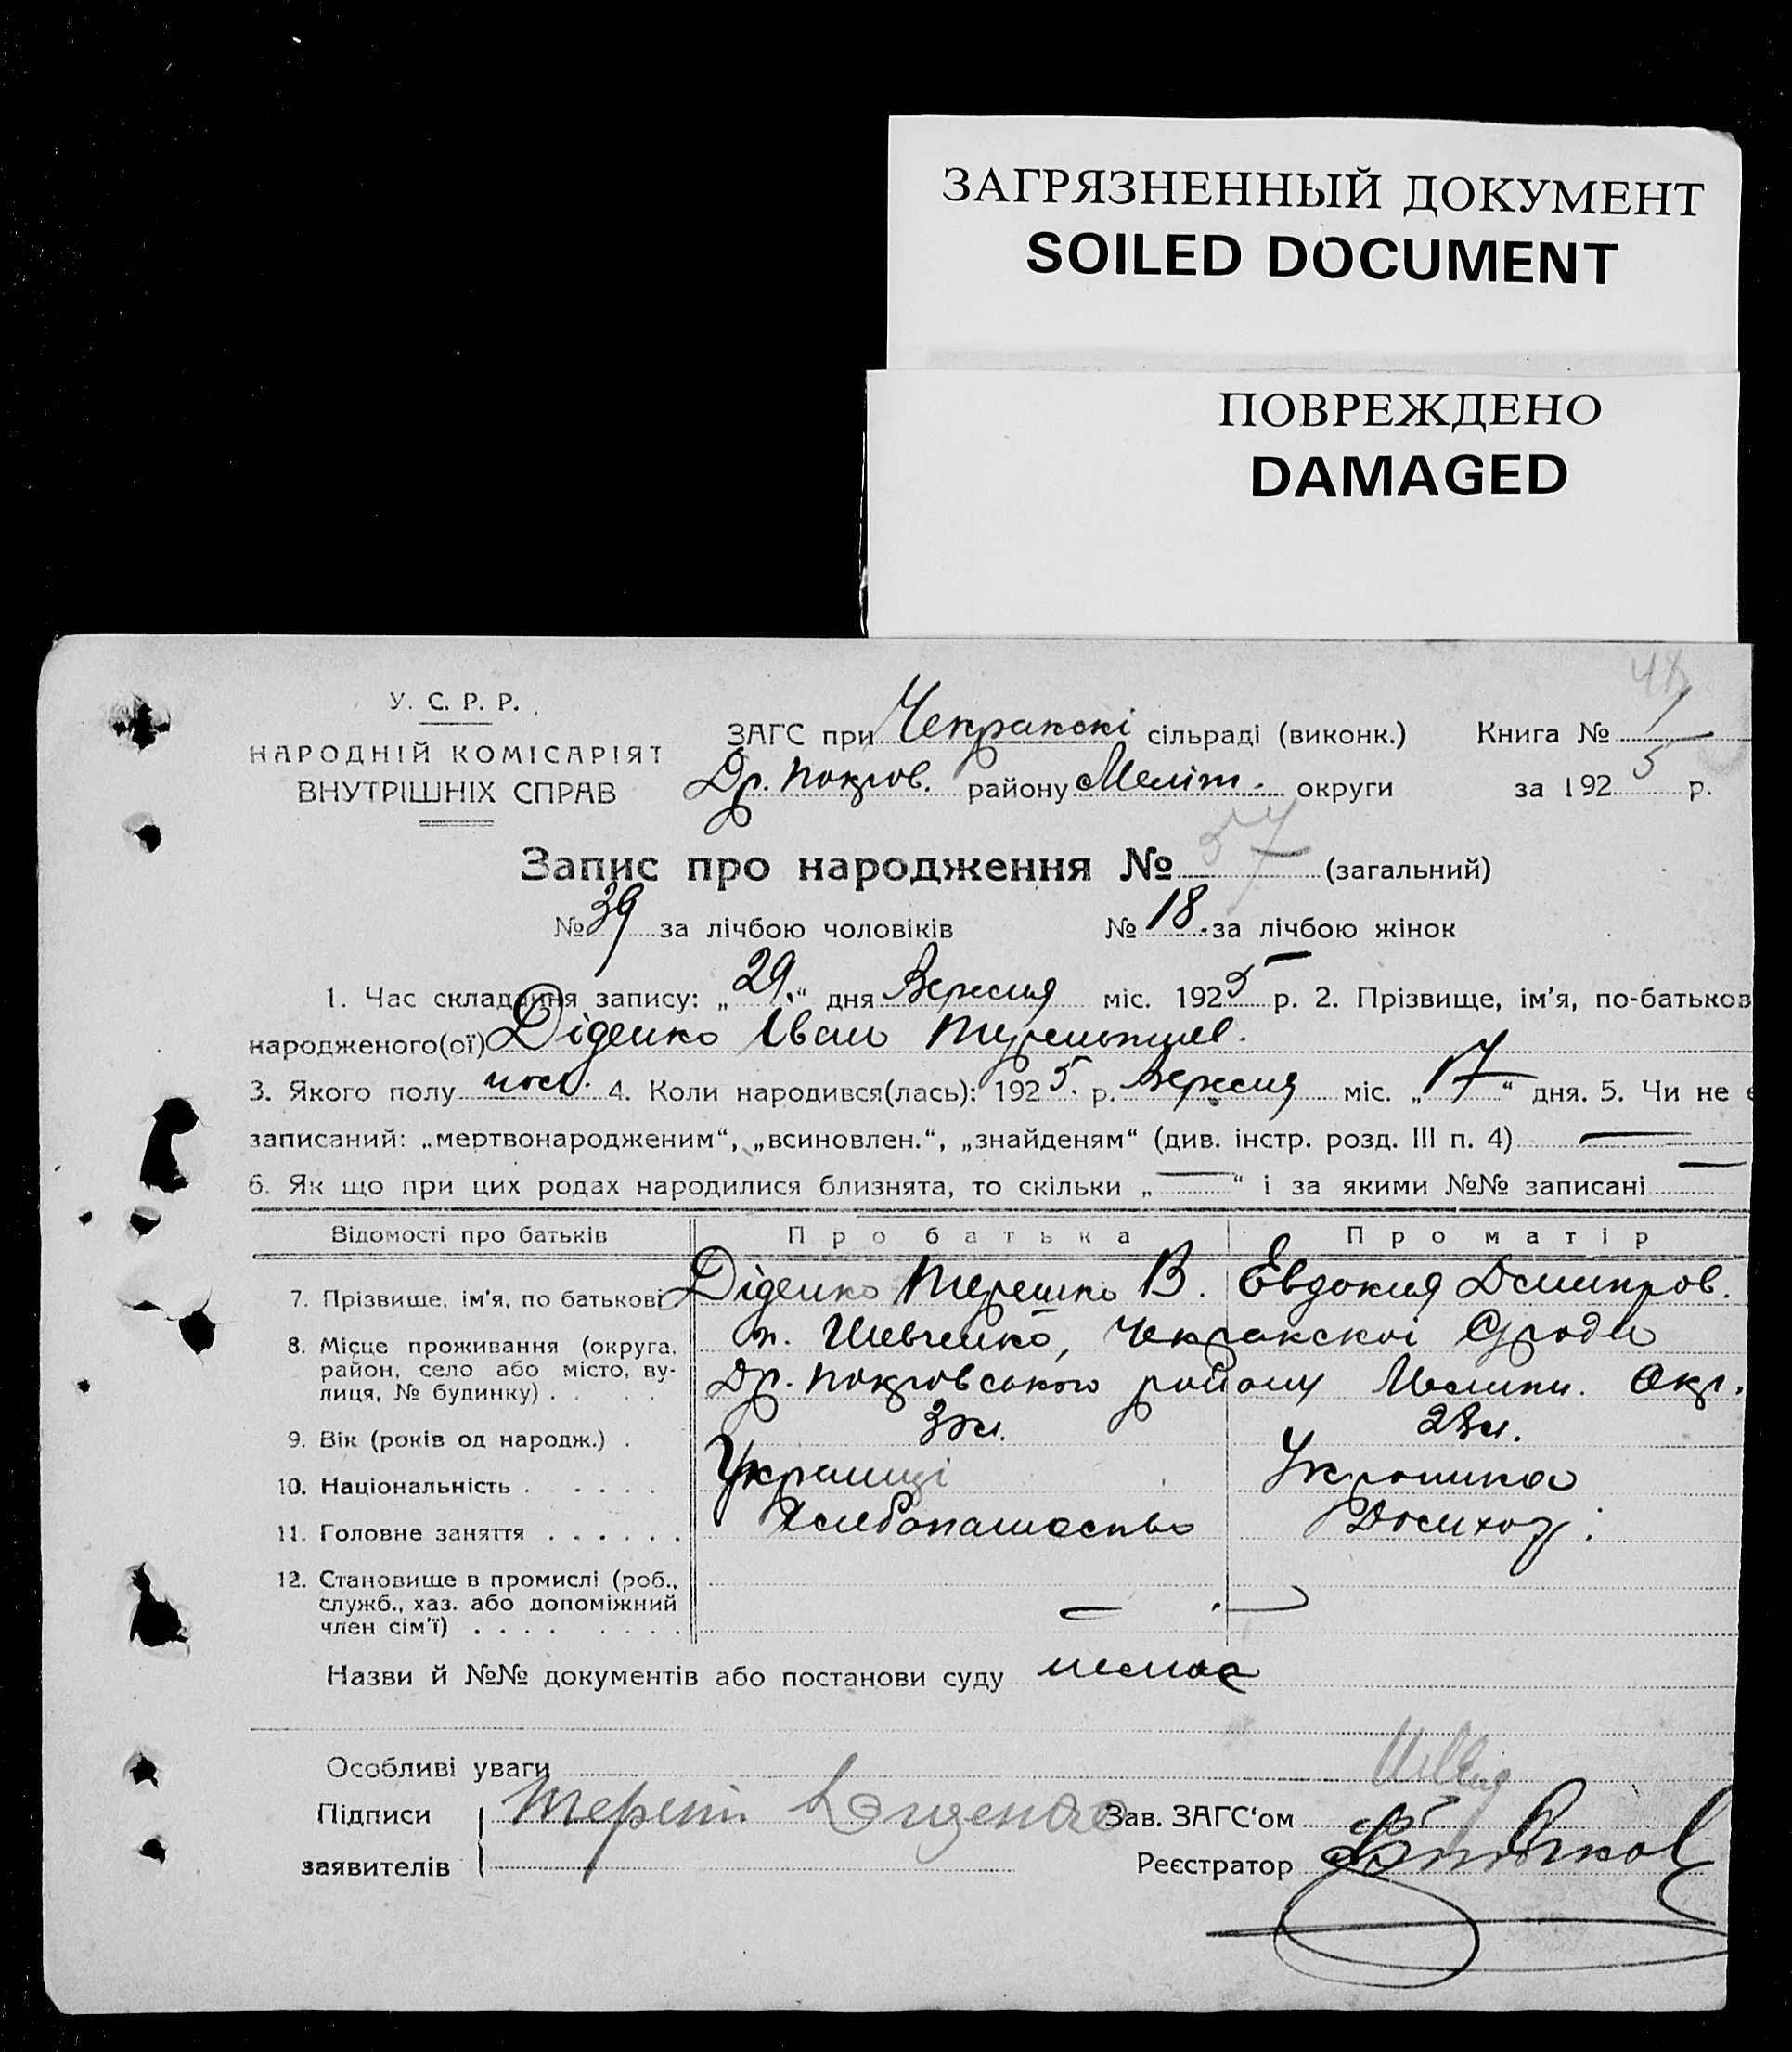 ЗАГРЯЗНЕННЫЙ ДОКУМЕНТ
SOILED DOCUMENT
ПОВРЕЖДЕНО
DAMAGED
У. С. Р. Р.
НАРОДНІЙ КОМІСАРІЯТ
ВНУТРІШНІХ СПРАВ
ЗАГС при Чекракскі сільраді (виконк.) Книга № 1
Др. Покров. району Меліт. округи за 1925 р.
Запис про народження № 57 (загальний)
№ 39 за лічбою чоловіків № 18. за лічбою жінок
1. Час складання запису: „29.“ дня Вересня міс. 1925 р. 2. Прізвище, ім'я, по-батьков
народженого(ої) Діденко Іван
3. Якого полу 4. Коли народився(лась): 1925. р. Вересня міс. „17“ дня. 5. Чи не є
записаний: „мертвонародженим“, „всиновлен.“, „знайденям“ (див. інстр. розд. III п. 4) —
6. Як що при цих родах народилися близнята, то скільки „—“ і за якими №№ записані —
Відомості про батьків Про батька Про матір
7. Прізвище, ім'я, по батькові Діденко Терешко В. Евдокия Дмитров.
8. Місце проживання (округа, район, село або місто, вулиця, № будинку) . . . п. Шевченко, Чекракскоі С/ради
Др. Покровського району Мелитп. Окр.
9. Вік (років од народж.) .
10. Національність . . . . . . Украинці Украинка
11. Головне заняття . . . . . . Хлебопашество Домхоз.
12. Становище в промислі (роб., служб., хаз. або допоміжний член сім'ї) . . . . . . . . —
Назви й №№ документів або постанови суду немає
Особливі уваги
Підписи Терентий Диденко Зав. ЗАГС‘ом
заявителів Реєстратор